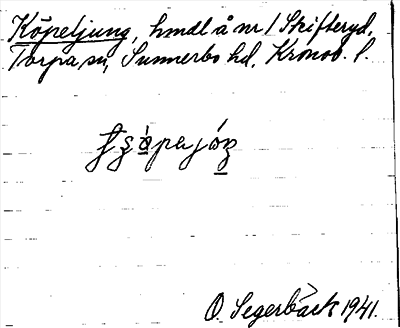 Köpeljung, hmdl å nr 1 Skifteryd,
Torpa sn, Sunnerbo hd, Kronob. l.
O. Segerbäck 1941.